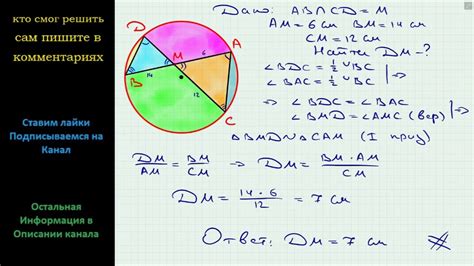 кто смог решить
сам пишите в
комментариях
Ставим лайки
Подписываемся на
Канал
Остальная
Информация в
Описании канала
D
A
M
6
14
B
12
C
Дано: AB∩CD = M
AM = 6 см BM = 14 см
CM = 12 см
Найти DM - ?
∠BDC = ½ ∪BC
∠BAC = ½ ∪BC |⇒
⇒ ∠BDC = ∠BAC
∠BMD = ∠AMC (вер) |⇒
△BMD ∾ △CAM (I приз)
DM/AM = BM/CM ⇒ DM = BM · AM/CM
DM = 14 · 6/12 = 7 см
Ответ: DM = 7 см